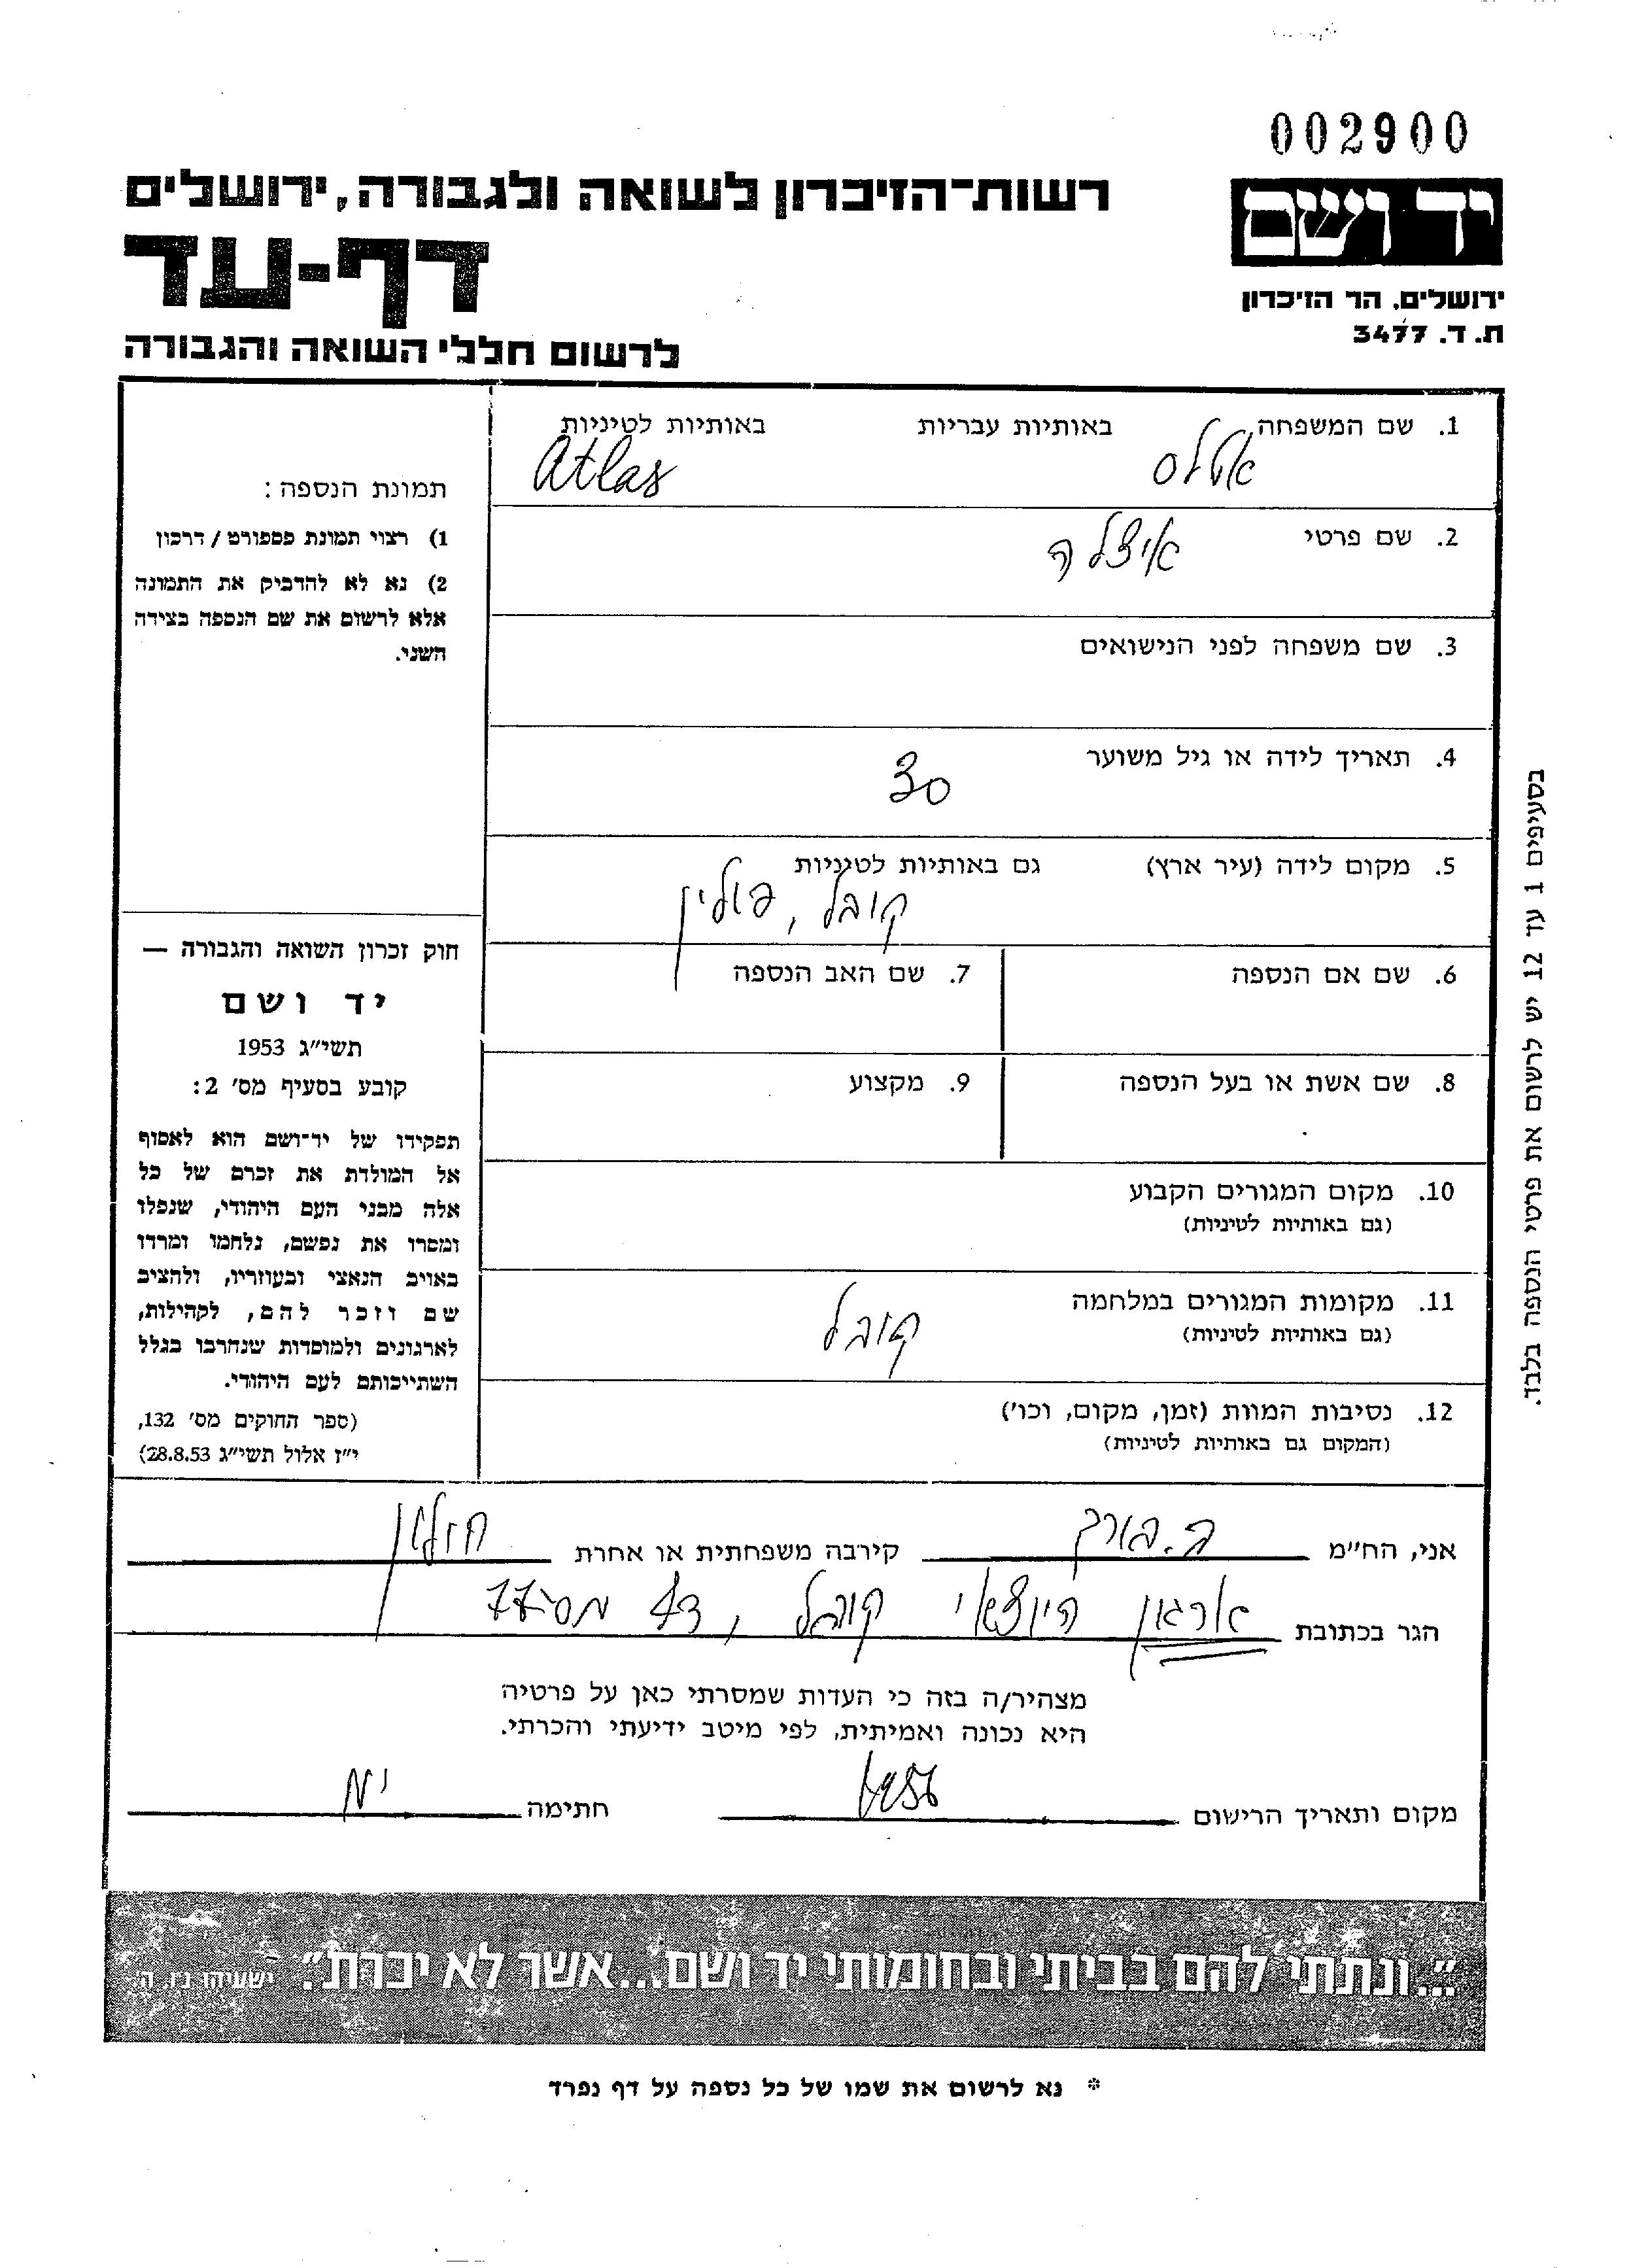 002900
יד ושם
ירושלים, הר הזיכרון
ת. ד. 3477
רשות־הזיכרון לשואה ולגבורה, ירושלים
דף-עד
לרשום חללי השואה והגבורה
1. שם המשפחה באותיות עבריות באותיות לטיניות
אטלס Atlas
2. שם פרטי איצלה
3. שם משפחה לפני הנישואים
4. תאריך לידה או גיל משוער
30
5. מקום לידה (עיר ארץ) גם באותיות לטיניות
קובל, פולין
6. שם אם הנספה 7. שם האב הנספה
8. שם אשת או בעל הנספה 9. מקצוע
10. מקום המגורים הקבוע
(גם באותיות לטיניות)
11. מקומות המגורים במלחמה
(גם באותיות לטיניות)
קובל
12. נסיבות המוות (זמן, מקום, וכו')
(המקום גם באותיות לטיניות)
תמונת הנספה:
1) רצוי תמונת פספורט / דרכון
2) נא לא להדביק את התמונה
אלא לרשום את שם הנספה בצידה
השני.
חוק זכרון השואה והגבורה —
יד ושם
תשי״ג 1953
קובע בסעיף מס׳ 2:
תפקידו של יד־ושם הוא לאסוף
אל המולדת את זכרם של כל
אלה מבני העם היהודי, שנפלו
ומסרו את נפשם, נלחמו ומרדו
באויב הנאצי ובעוזריו, ולהציב
שם וזכר להם, לקהילות,
לארגונים ולמוסדות שנחרבו בגלל
השתייכותם לעם היהודי.
(ספר החוקים מס׳ 132,
י״ז אלול תשי״ג 28.8.53)
בסעיפים 1 עד 12 יש לרשום את פרטי הנספה בלבד.
אני, הח״מ קירבה משפחתית או אחרת חולון
הגר בכתובת ארגון היוצאי קובל,
מצהיר/ה בזה כי העדות שמסרתי כאן על פרטיה
היא נכונה ואמיתית, לפי מיטב ידיעתי והכרתי.
מקום ותאריך הרישום חתימה
״...ונתתי להם בביתי ובחומותי יד ושם...אשר לא יכרת״. ישעיהו נ״ו, ה.
* נא לרשום את שמו של כל נספה על דף נפרד